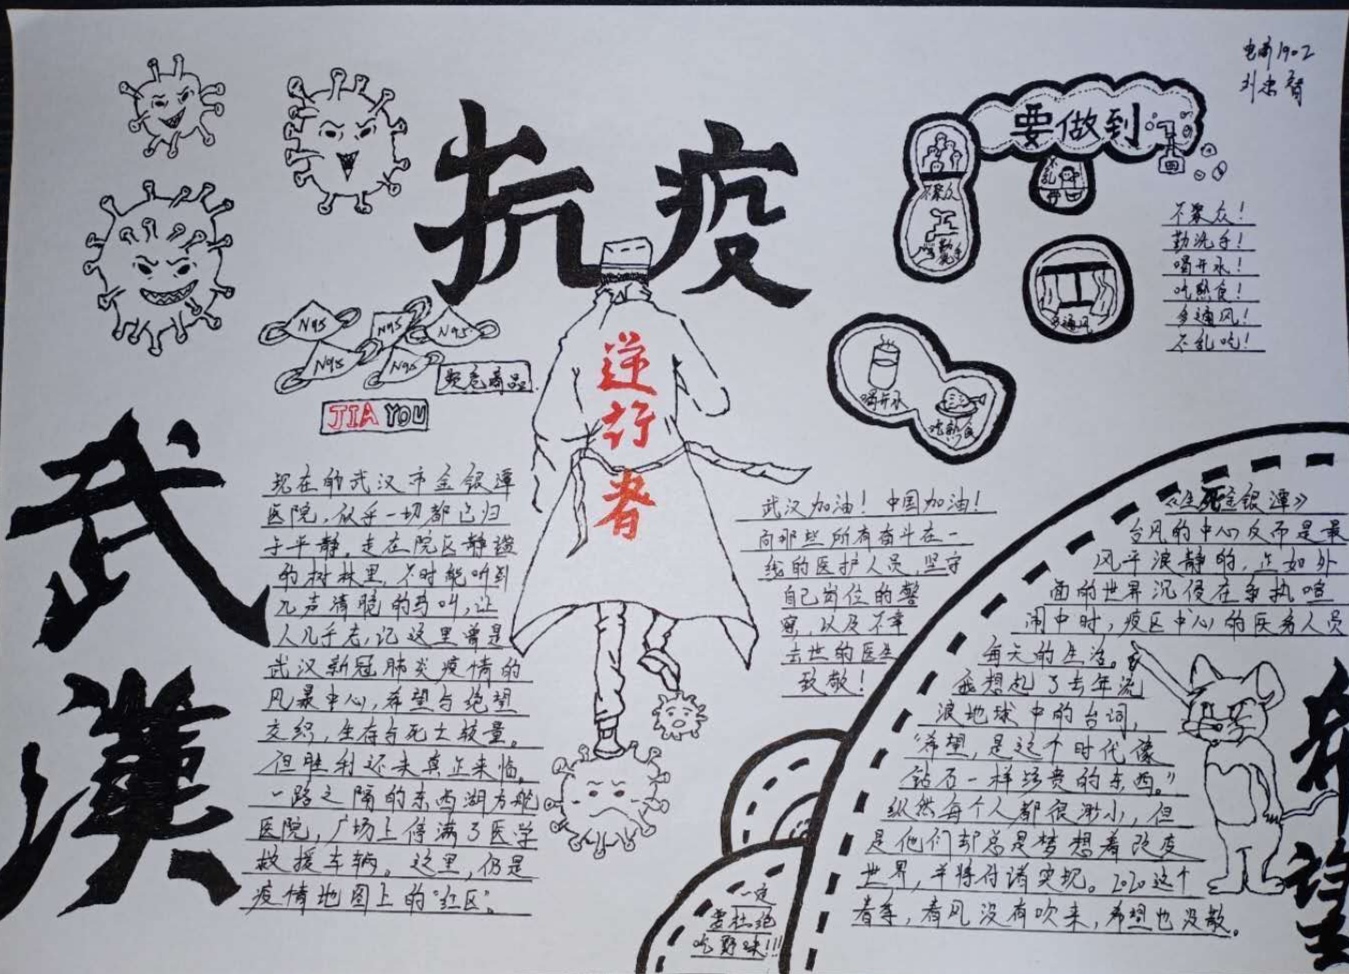 电商1902
抗疫
要做到
不聚众
勤洗手
多通风
喝开水
吃熟食
不聚众！
勤洗手！
喝开水！
吃熟食！
多通风！
不乱吃！
N95
N95
N95
N95
N95
JIA YOU
逆行者
武漢
现在的武汉市金银潭
医院，似乎一切都已归
于平静。走在院区静谧
的树林里，不时能听到
几声清脆的鸟叫，让
人几乎忘记这里曾是
武汉新冠肺炎疫情的
风暴中心，希望与绝望
交织，生存与死亡较量。
但胜利还未真正来临。
一路之隔的东西湖方舱
医院，广场上停满了医学
救援车辆。这里，仍是
疫情地图上的“红区”。
武汉加油！中国加油！
向那些所有奋斗在一
线的医护人员，坚守
自己岗位的警
察，以及不幸
去世的医生
致敬！
一定
要杜绝
吃野味!!!
台风的中心反而是最
风平浪静的，正如外
面的世界沉侵在争执喧
闹中时，疫区中心的医务人员
每天的生活。
我想起了去年流
浪地球中的台词，
“希望，是这个时代像
钻石一样珍贵的东西。”
纵然每个人都很渺小，但
是他们却总是梦想着改变
世界，并将付诸实现。2020这个
春季，春风没有吹来，希望也没散。
希望